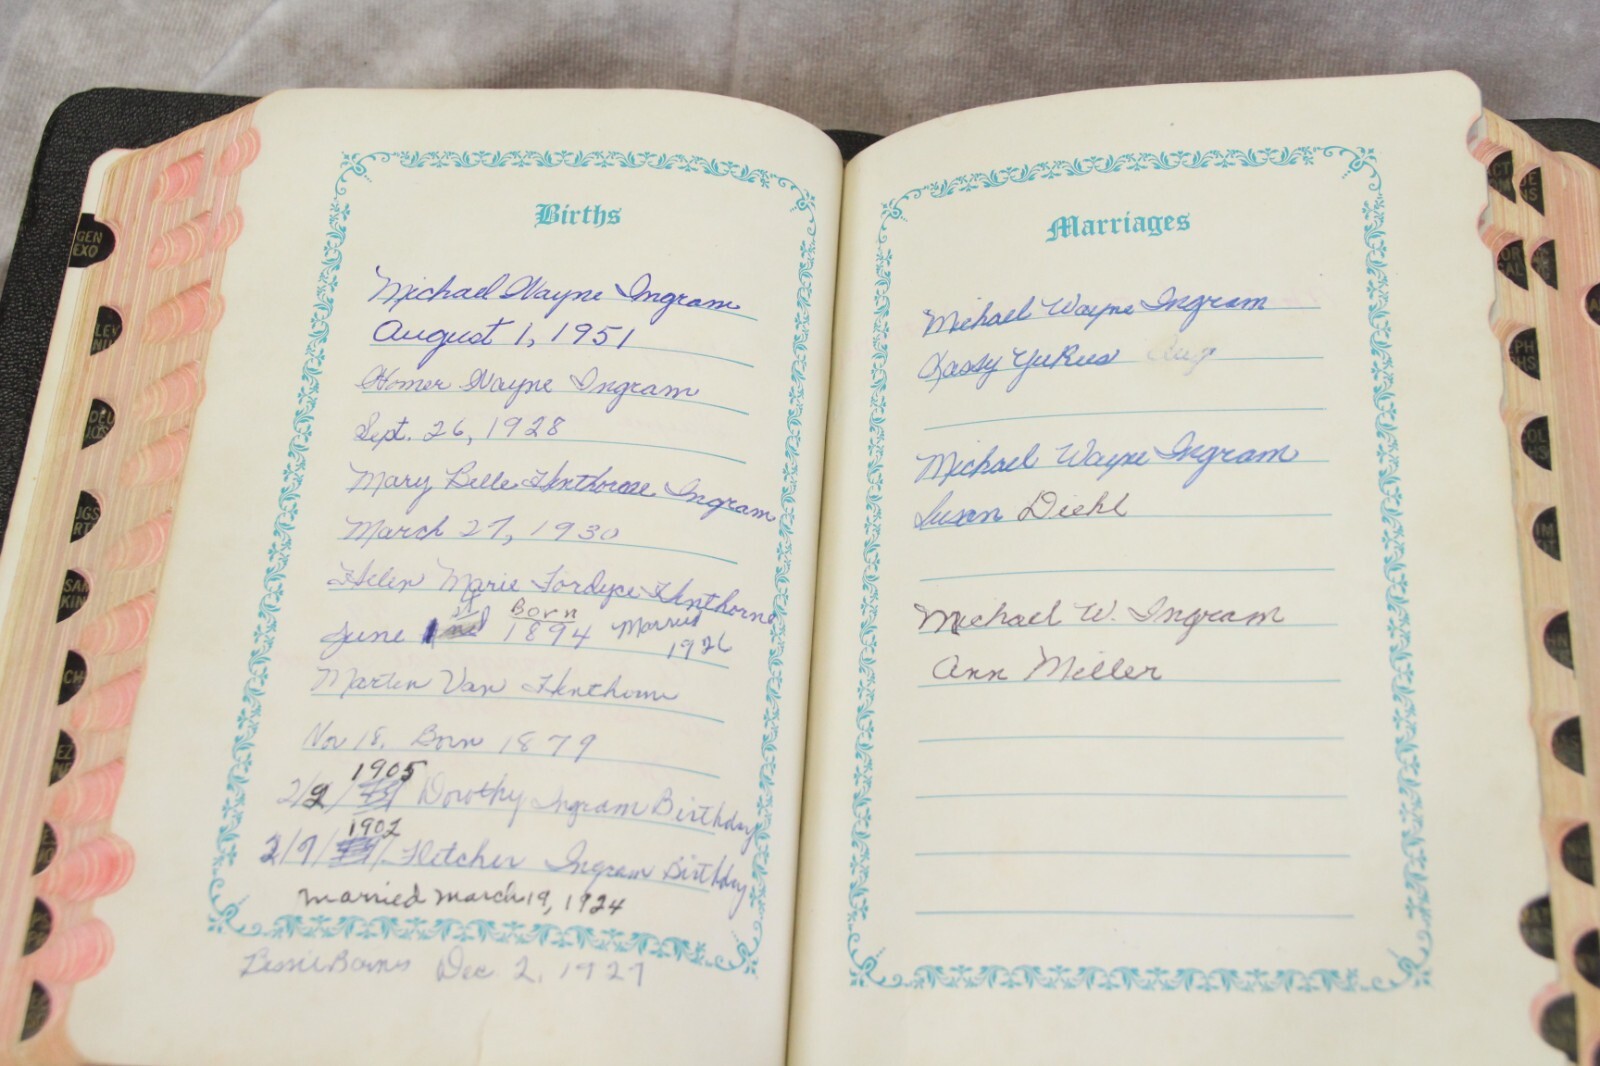 Births
Michael Wayne Ingram
August 1, 1951
Homer Wayne Ingram
Sept. 26, 1928
Mary Belle Henthorne Ingram
March 27, 1930
Helen Marie Fordyce Henthorne
Born
June 1894 Married
1926
Martin Van Henthorne
Nov 18, Born 1879
1905
2/2/ Dorothy Ingram Birthday
1902
2/9/ Fletcher Ingram Birthday
Married March 19, 1924
Dec 2, 1927
Marriages
Michael Wayne Ingram
Aug
Michael Wayne Ingram
Susan Diehl
Michael W. Ingram
Ann Miller
GEN
EXO
LEV
SAM
KIN